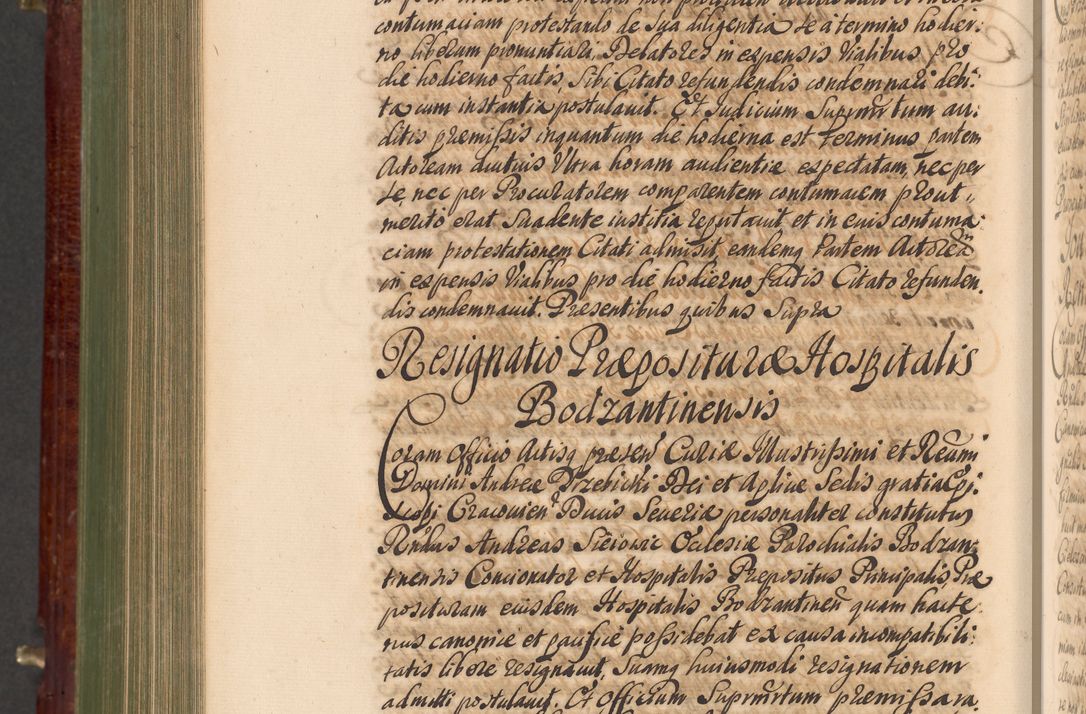 contumaciam protestando de sua diligentia se a termino hodier:
no liberum pronuntiari, Delatores in expensis vialibus pro
die hodierno factis, sibi Citato refundendis condemnari debi:
ta cum instantia postulavit. Et Judicium Suprmrtum au:
ditis premissis inquantum die hodierna est terminus partem
Actoream diutius Ultra horam audientiæ expectatam, nec per
se, nec per Procuratorem comparentem contumacem prout
merito erat Suadente iustitia reputavit et in eius contuma:
ciam protestationem Citati admisit, eandemq Partem Actorea
in expensis Vialibus pro die hodierno factis Citato refunden.
dis condemnavit. Presentibus quibus Supra
Resignatio Præposituræ Hospitalis
Bodzantinensis
Coram Officio Actisq presen Curiæ Illustrissimi et Reumi
Domini Andreæ Trzebicki Dei et Aplicæ Sedis gratia Epi.
scopi Cracovien Ducis Severiæ personaliter constitutus
Rndus Andreas Ecclesiæ Parochialis Bodzan:
tinensis Concionator et Hospitalis Præpositus Principalis Præ
posituram eiusdem Hospitalis Bodzantinen quam hacte:
nus canonice et pacifice possidebat ex causa incompatibili:
tatis libere resignavit, Suamq huiusmodi resignationem
admitti postulavit. Et Officium Suprmrtum præmissara